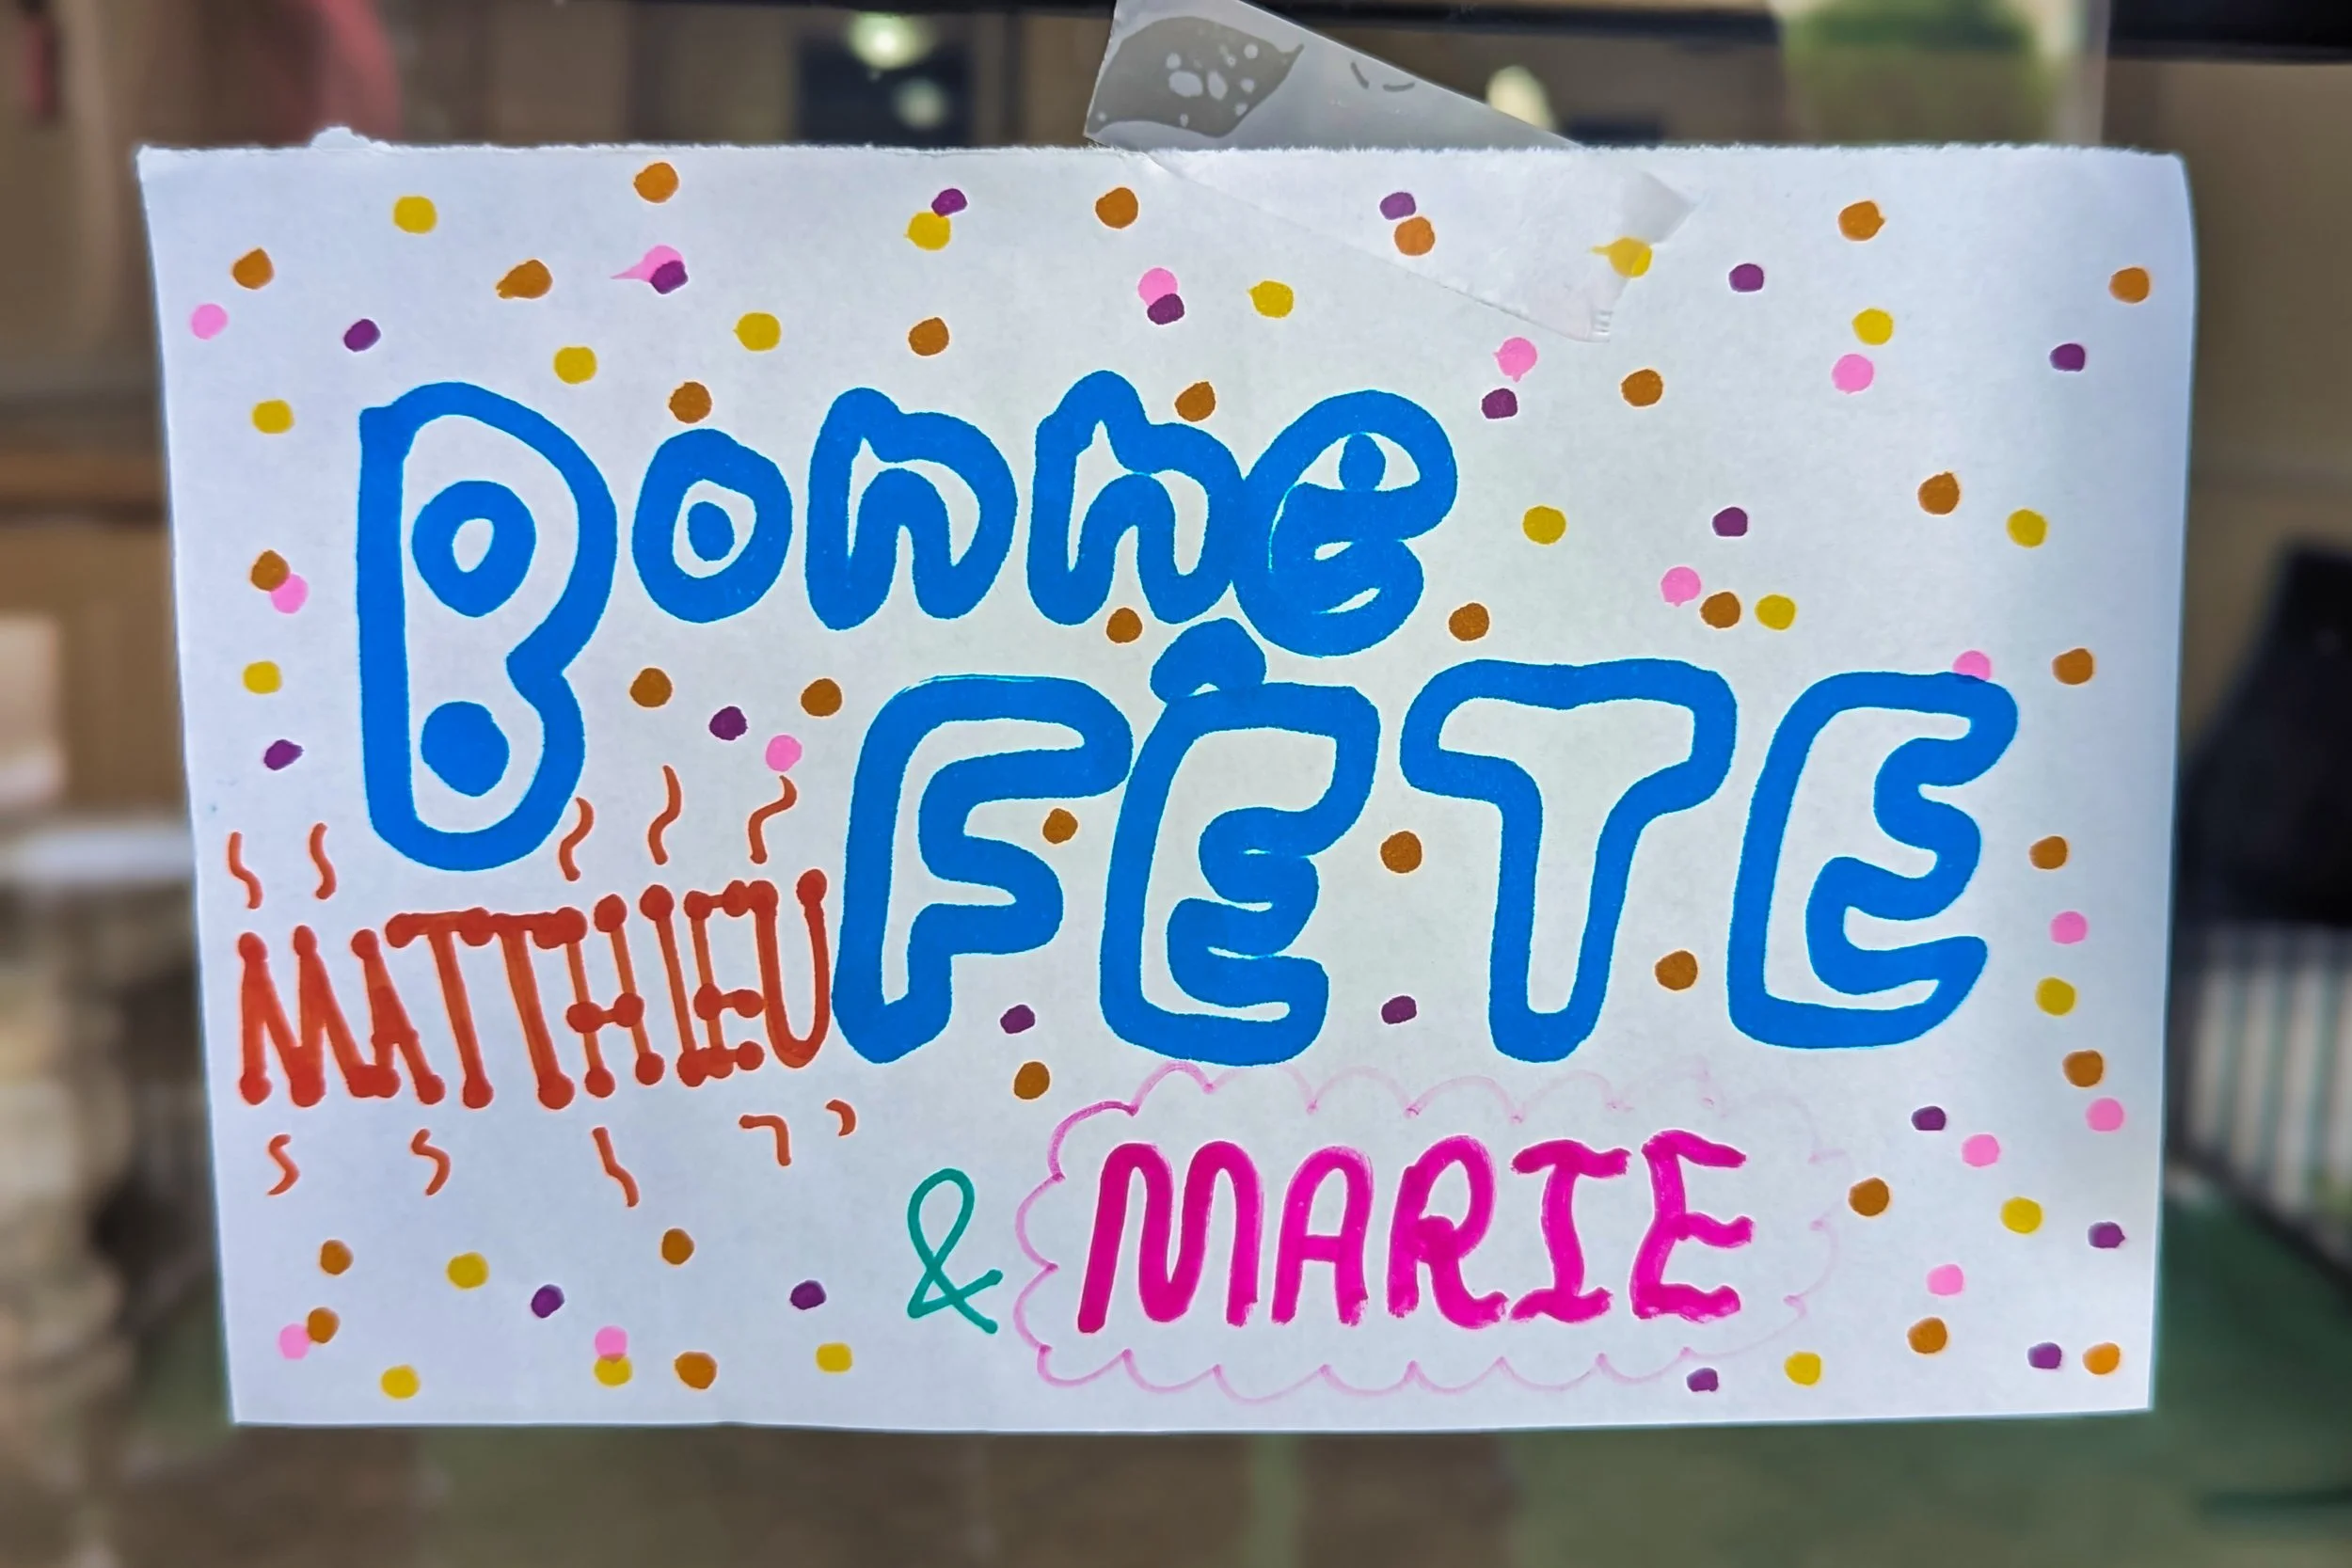 Bonne
FÊTE
MATTHIEU
& MARIE